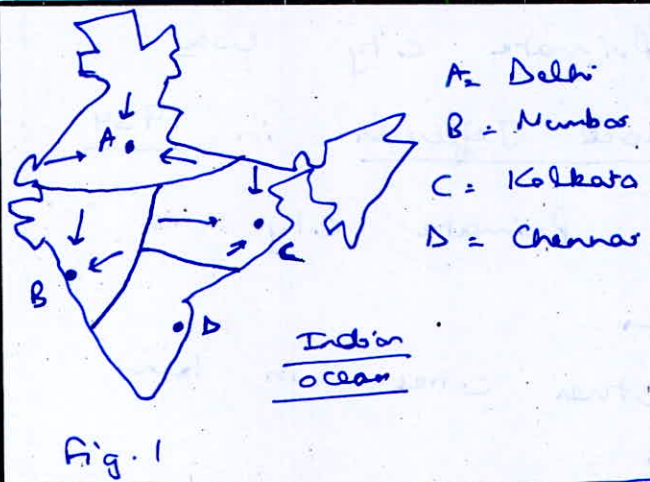 A = Delhi
B = Mumbai
C = Kolkata
D = Chennai
A
B
C
D
Indian
Ocean
Fig. 1